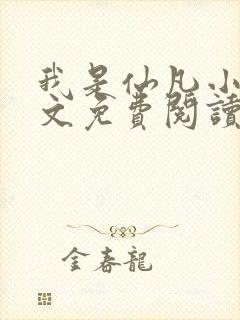 我是仙凡小
文免费閱讀
金春龍